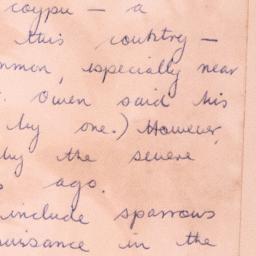 coypu – a
this country –
mmon, especially near
. Owen said his
by one.) However,
by the severe
s ago.
include sparrows
nuisance in the